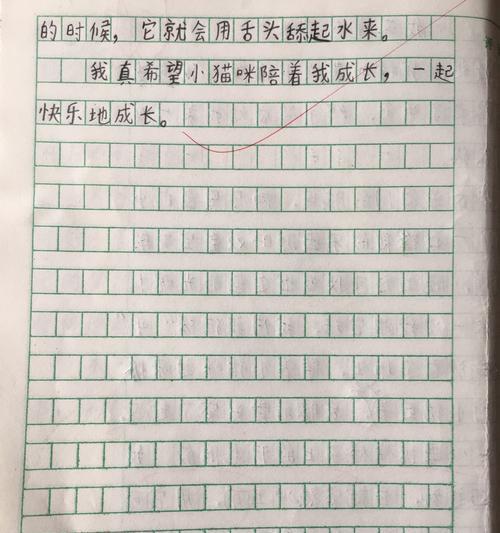 的时候，它就会用舌头舔起水来。
我真希望小猫咪陪着我成长，一起
快乐地成长。